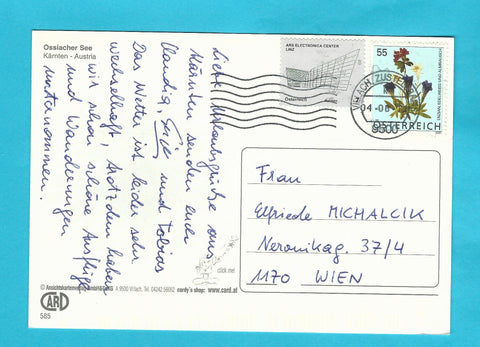 Ossiacher See
Kärnten - Austria
Liebe Urlaubsgrüße aus
Kärnten senden euch
Claudia, und Tobias
Das Wetter ist leider sehr
wechselhaft, trotzdem haben
wir schon schöne Ausflüge
und Wanderungen
unternommen.
ARS ELECTRONICA CENTER
LINZ
Österreich
55
ÖSTERREICH
04-08
9500
Frau
Elfriede MICHALCIK
Veronikag. 37/4
1170 WIEN
click me!
A 9500 Villach, Tel. 04242 56062 cardy's shop: www.card.at
CARD
585